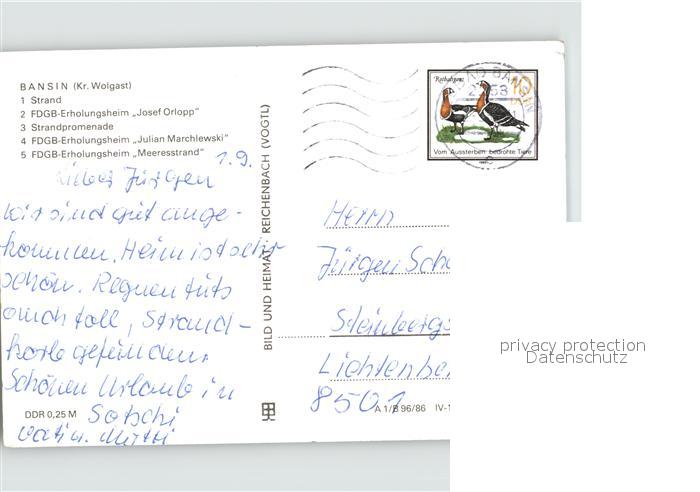 BANSIN (Kr. Wolgast)
1 Strand
2 FDGB-Erholungsheim „Josef Orlopp"
3 Strandpromenade
4 FDGB-Erholungsheim „Julian Marchlewski"
5 FDGB-Erholungsheim „Meeresstrand"
1.9.
Lieber Jürgen
wir sind gut ange-
kommen. Heim ist sehr
schön. Regnen tuts
auch toll, Strand-
korb gefunden.
Schönen Urlaub in
Sotschi
Vati u. Mutti
DDR 0,25 M
BILD UND HEIMAT REICHENBACH (VOGTL)
Rothalsgans
10
BANSIN
2253
Vom Aussterben bedrohte Tiere
Herrn
Jürgen Sch
Steinbergs
Lichtenbe
8501
A 1/B 96/86 IV-1
privacy protection
Datenschutz